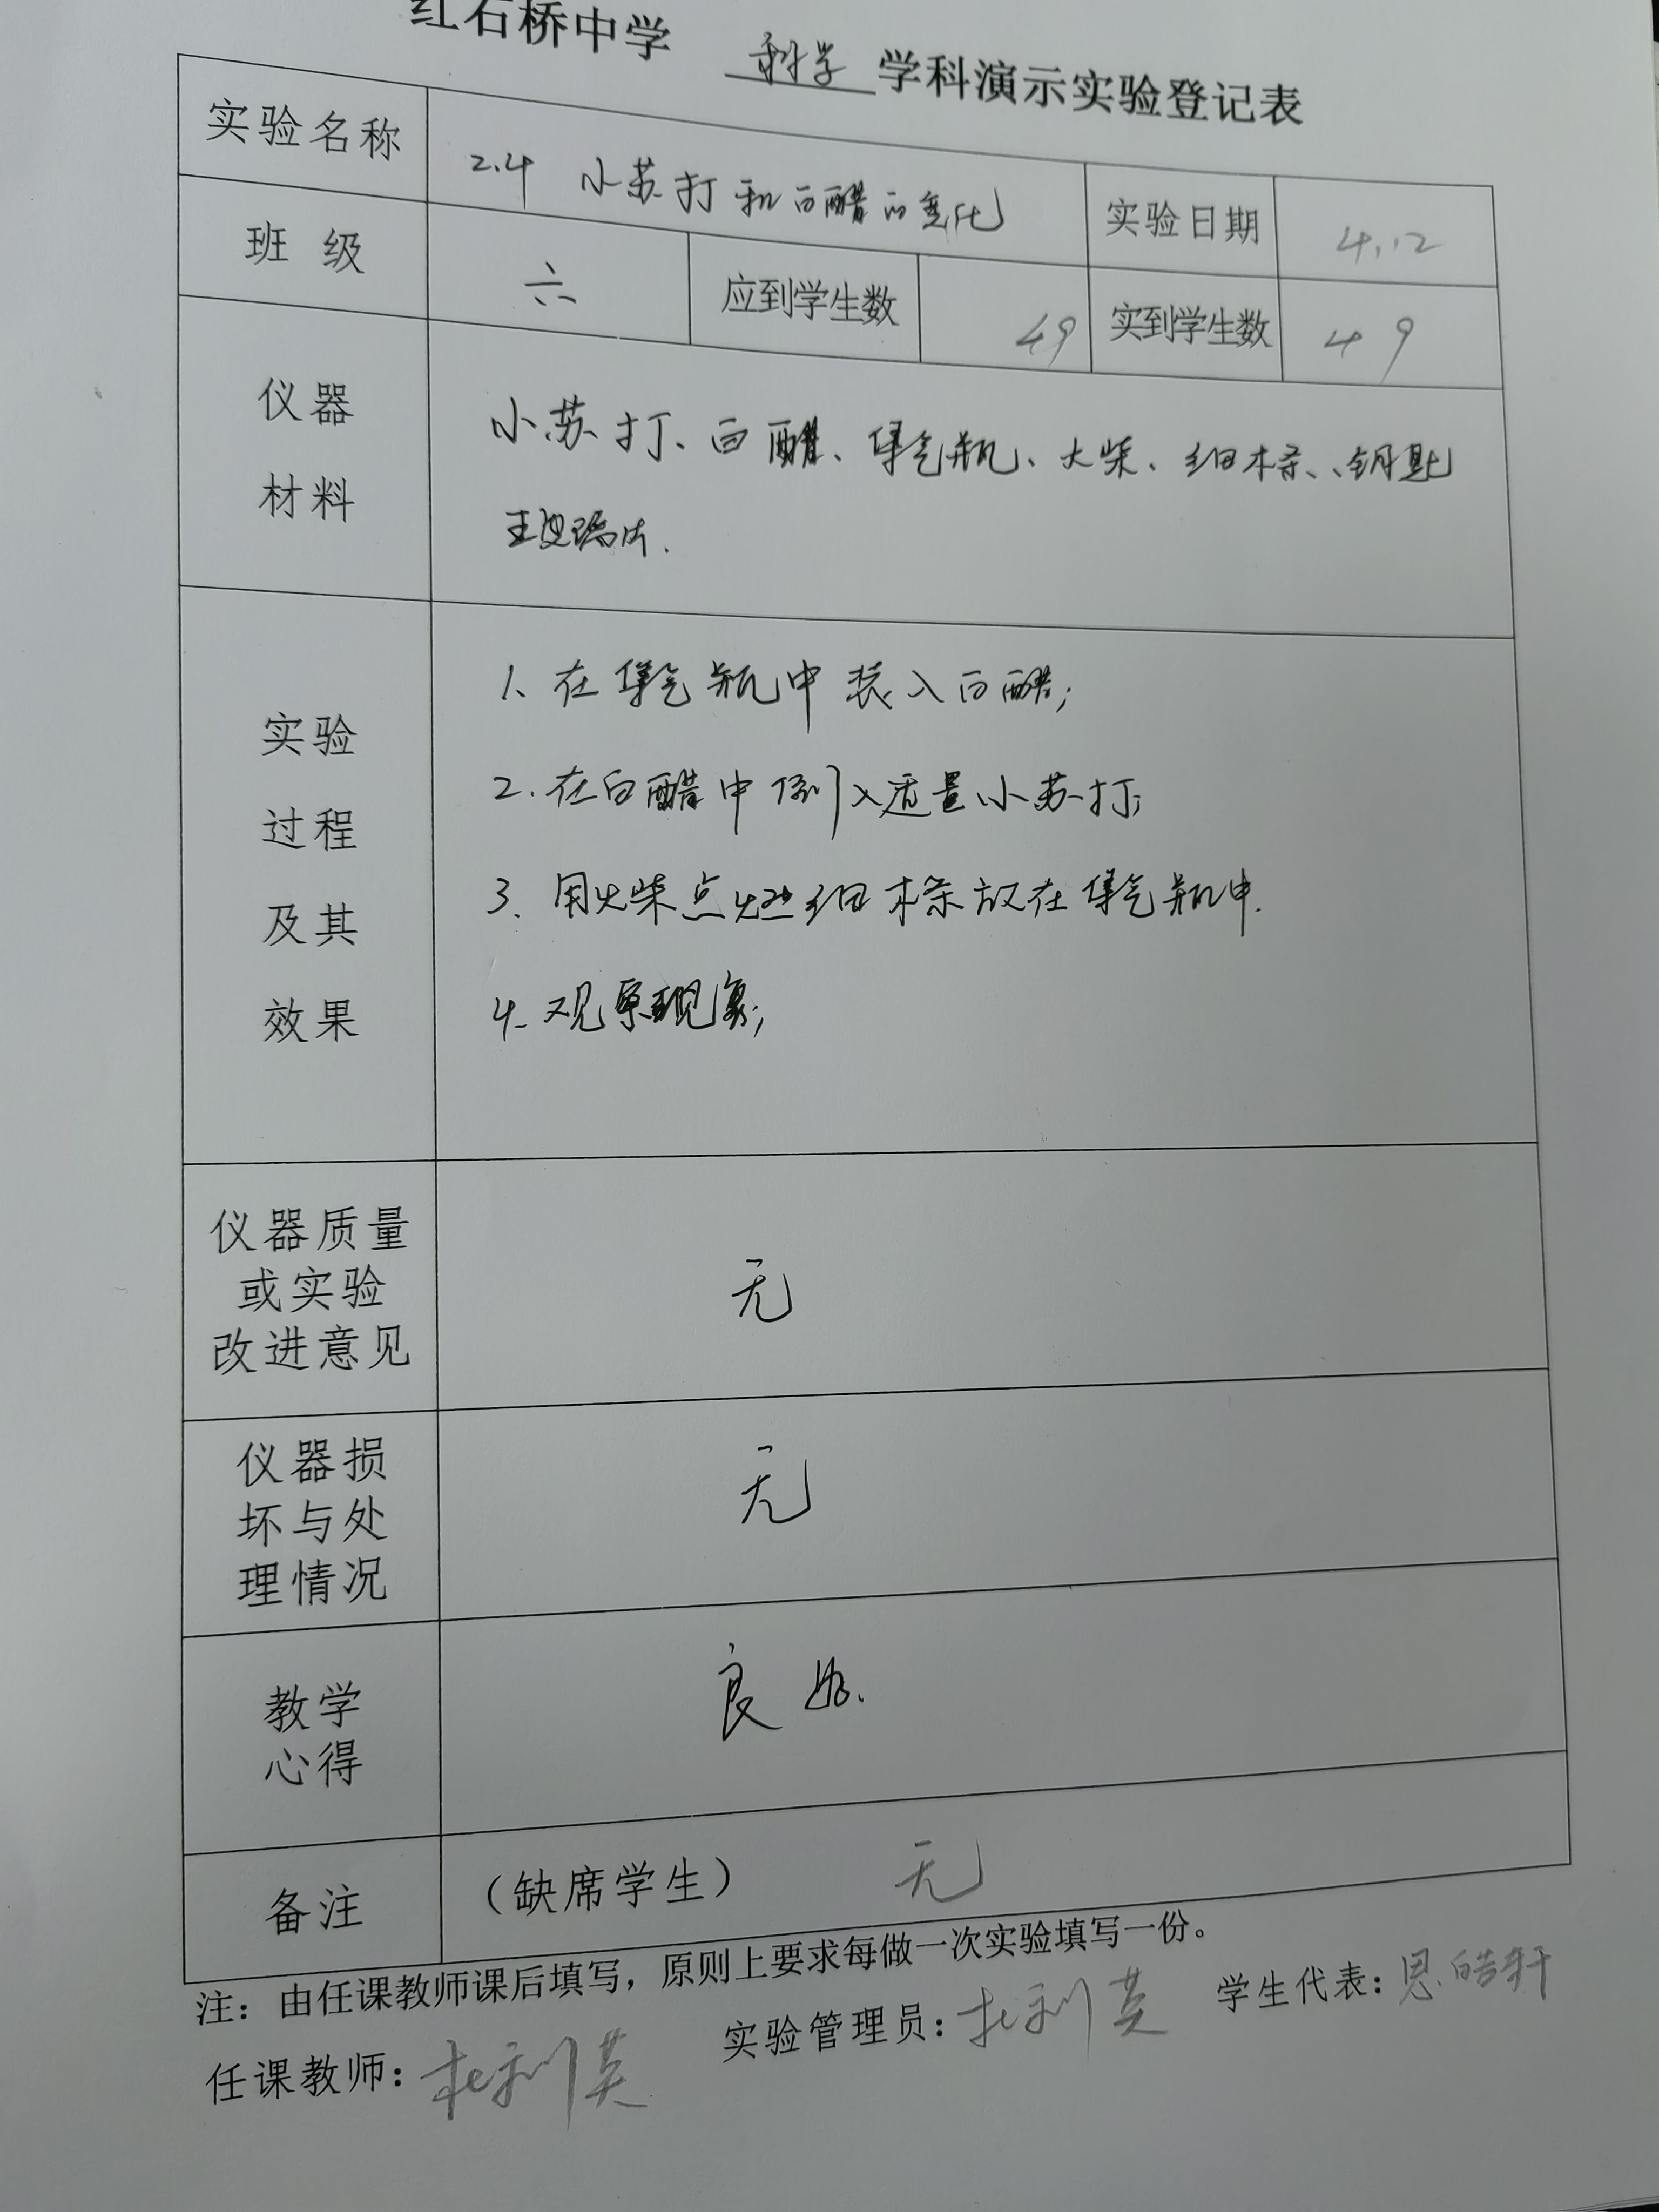 红石桥中学 科学 学科演示实验登记表
实验名称 2.4 小苏打和白醋的变化 实验日期 4.12
班级 六 应到学生数 49 实到学生数 49
仪器
材料
小苏打、白醋、集气瓶、火柴、细木条、钥匙
玻璃片.
实验
过程
及其
效果
1、在集气瓶中装入白醋;
2.在白醋中倒入适量小苏打;
3.用火柴点燃细木条放在集气瓶中.
4.观察现象;
仪器质量
或实验
改进意见
无
仪器损
坏与处
理情况
无
教学
心得
良好.
备注 (缺席学生) 无
注:由任课教师课后填写,原则上要求每做一次实验填写一份。
任课教师: 杜利英 实验管理员: 杜利英 学生代表: 皓轩